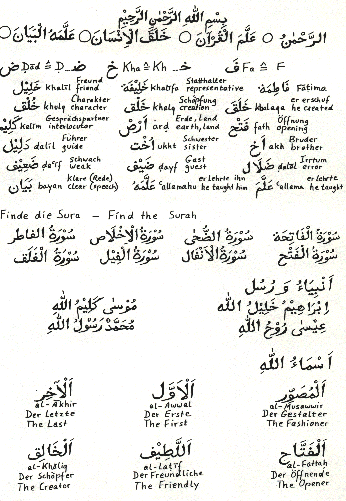 بِسْمِ اللهِ الرَّحْمٰنِ الرَّحِيْمِ
الرَّحْمٰنُ ○ عَلَّمَ الْقُرْآنَ ○ خَلَقَ الْإِنْسَانَ ○ عَلَّمَهُ الْبَيَانَ ○
ف Fa ≙ F خ Kha ≙ Kh ض Ḍād ≙ Ḍ
فَاطِمَة Fātima خَلِيْفَة Stadthalter khalīfa representative خَلِيْل Freund khalīl friend
خَلَقَ er erschuf khalaqa he created خَلْق Schöpfung khalq creation خُلُق Charakter khulq character
فَتْح Öffnung fath opening أَرْض Erde, Land ard earth, land كَلِيْم Gesprächspartner kalīm interlocutor
أَخ Bruder akh brother أُخْت Schwester ukht sister دَلِيْل Führer dalīl guide
ضَلَال Irrtum dalāl error ضَيْف Gast dayf guest ضَعِيْف Schwach da'īf weak
عَلَّمَ er lehrte 'allama he taught عَلَّمَهُ er lehrte ihn 'allamahu he taught him بَيَان Klare (Rede) bayan clear (speech)
Finde die Sura – Find the Surah
سُوْرَةُ الْفَاتِحَة سُوْرَةُ الضُّحٰى سُوْرَةُ الْإِخْلَاص سُوْرَةُ الْفَاطِر
سُوْرَةُ الْفَتْح سُوْرَةُ الْأَنْفَال سُوْرَةُ الْفِيْل سُوْرَةُ الْفَلَق
أَنْبِيَاءُ وَرُسُل
إِبْرَاهِيْمُ خَلِيْلُ اللهِ مُوْسٰى كَلِيْمُ اللهِ
عِيْسٰى رُوْحُ اللهِ مُحَمَّدٌ رَسُوْلُ اللهِ
أَسْمَاءُ اللهِ
الْمُصَوِّر الْأَوَّل الْآخِر
al-Musawwir al-Awwal al-Akhir
Der Gestalter Der Erste Der Letzte
The Fashioner The First The Last
الْفَتَّاح اللَّطِيْف الْخَالِق
al-Fattah al-latīf al-Khāliq
Der Öffnende Der Freundliche Der Schöpfer
The Opener The Friendly The Creator